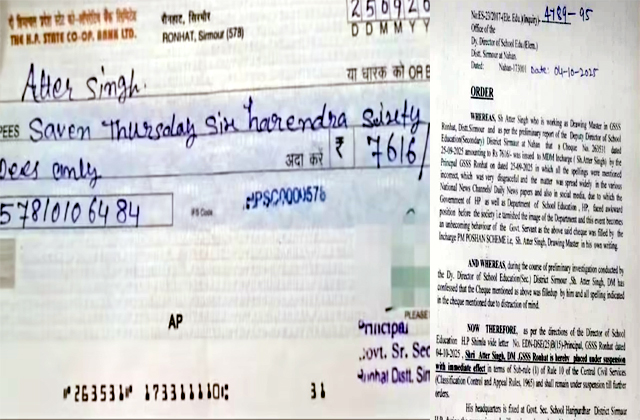 दी हिमाचल प्रदेश स्टेट को-ऑपरेटिव बैंक लिमिटेड
THE H.P. STATE CO-OP. BANK LTD.
रौनहाट, सिरमौर
RONHAT, Sirmour (578)
250920
D D M M Y Y
Atter Singh.
या धारक को OR B
PEES Saven Thursday Six harendra Sixty
Dees only
अदा करें ₹ 7616/
57810106484
IFS Code
HPSC0000576
AP
PLEASE
Principal
Govt. Sr. Sec
Ronhat Distt. Sirm
263531 173311110 31
No:ES-23/2017-(Ele. Edu.)(Inquiry)- 4789-95
Office of the
Dy. Director of School Edu(Elem.)
Distt. Sirmour at Nahan.
Dated: Nahan-173001 Date: 04-10-2025
ORDER
WHEREAS, Sh Atter Singh who is working as Drawing Master in GSSS
Ronhat, Distt.Sirmour and as per the preliminary report of the Deputy Director of School
Education(Secondary) District Sirmour at Nahan that a Cheque No. 263531 dated
25-09-2025 amounting to Rs 7616/- was issued to MDM Incharge ( Sh.Atter Singh) by the
Principal GSSS Ronhat on dated 25-09-2025 in which all the spellings were mentioned
incorrect, which was very disgraceful and the matter was spread widely in the various
National News Channels/ Daily News papers and also in social media, due to which the
Government of HP as well as Department of School Education , HP, faced awkward
position before the society i.e tarnished the image of the Department and this event becomes
an unbecoming behaviour of the Govt. Servant as the above said cheque was filled by the
Incharge PM POSHAN SCHEME i.e, Sh. Atter Singh, Drawing Master in his own writing.
AND WHEREAS, during the course of preliminary investigation conducted by
the Dy. Director of School Education(Sec.) District Sirmour ,Sh. Atter Singh, DM has
confessed that the Cheque mentioned as above was filledup by him and all spelling indicated
in the cheque mentioned due to distraction of mind.
NOW THEREFORE, as per the directions of the Director of School
Education H.P Shimla vide letter No. EDN-DSE(25)B(15)-Principal, GSSS Ronhat dated
04-10-2025 , Shri Atter Singh, DM ,GSSS Ronhat is hereby placed under suspension
with immediate effect in terms of Sub-rule (1) of Rule 10 of the Central Civil Services
(Classification Control and Appeal Rules, 1965) and shall remain under suspension till further
orders.
His headquarters is fixed at Govt. Sec. School Haripurdhar District Sirmour